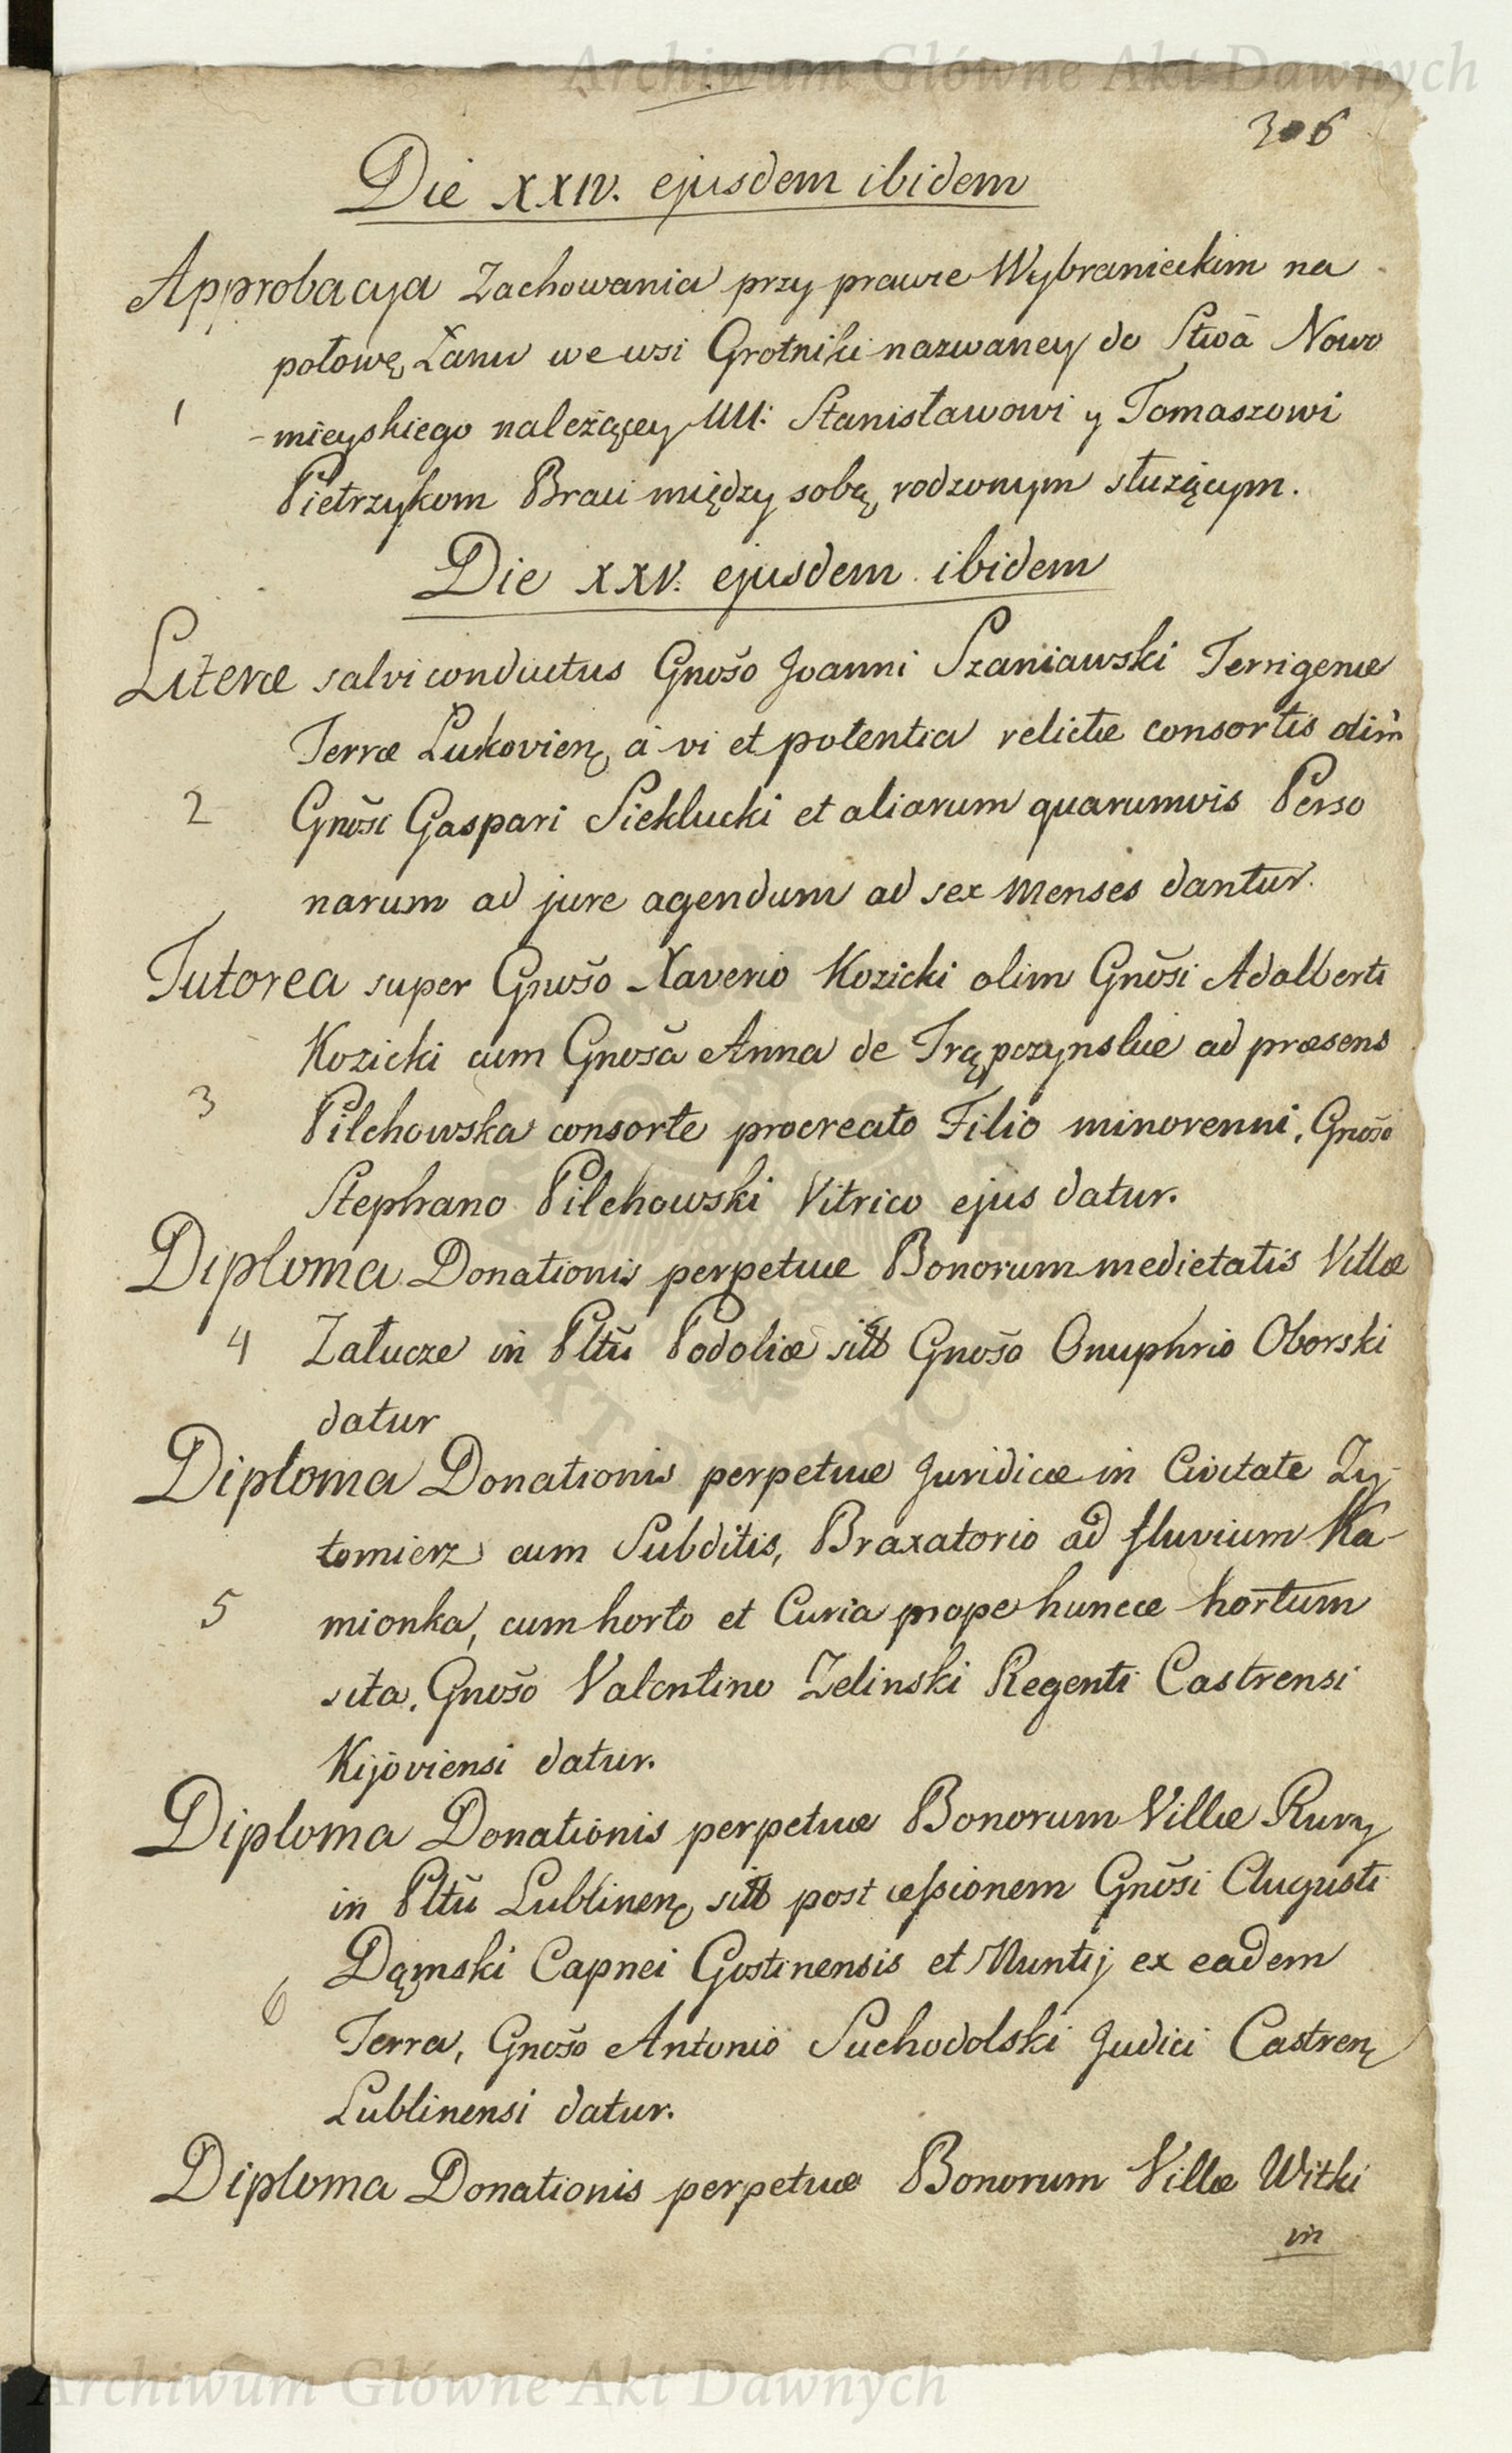 Archiwum Główne Akt Dawnych
306
Die XXIV. ejusdem ibidem
Approbacya Zachowania przy prawie Wybranieckim na
połowę Łanu we wsi Grotniki nazwaney do Stwā Nowo
1
-mieyskiego należącey UU: Stanisławowi y Tomaszowi
Pietrzykom Braci między sobą rodzonym służącym.
Die XXV. ejusdem ibidem
Literæ salvi conductus Gnošo Joanni Szaniawski Terrigenæ
Terræ Lukovien̨ à vi et potentia relictæ consortis olim
2
Gnōsi Gaspari Sieklucki et aliarum quarumvis Perso
narum ad jure agendum ad sex menses dantur.
Tutorea super Gnošo Xaverio Kozicki olim Gnōsi Adalberti
Kozicki cum Gnošā Anna de Trąpczynskie ad præsens
3
Pilchowska consorte procreato Filio minorenni, Gnošo
Stephano Pilchowski Vitrico ejus datur.
Diploma Donationis perpetuæ Bonorum medietatis Villæ
4
Załucze in Pltū Podoliæ sitt Gnošo Onuphrio Oborski
datur
Diploma Donationis perpetuæ Juridicæ in Civitate Zy-
tomierz cum Subditis, Braxatorio ad fluvium Ka-
5
mionka, cum horto et Curia prope huncce hortum
sita, Gnošo Valentino Zelinski Regenti Castrensi
Kijoviensi datur.
Diploma Donationis perpetuæ Bonorum Villæ Rury
in Pltū Lublinen̨ sitt post cessionem Gnōsi Augusti
Dąmski Capnei Gostinensis et Nuntij ex eadem
6
Terra, Gnošo Antonio Suchodolski Judici Castren̨
Lublinensi datur.
Diploma Donationis perpetuæ Bonorum Villæ Witki
in
Archiwum Główne Akt Dawnych